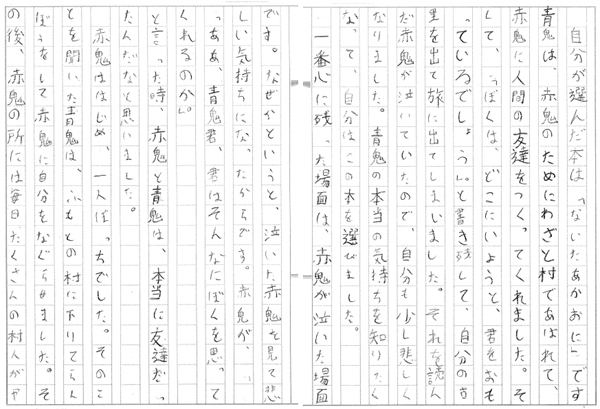 自分が選んだ本は「ないたあかおに」です
青鬼は、赤鬼のためにわざと村であばれて、
赤鬼に人間の友達をつくってくれました。そ
して、「ぼくは、どこにいようと、君をおも
っているでしょう」と書き残して、自分の
里を出て旅に出てしまいました。それを読ん
だ赤鬼が泣いていたので、自分も少し悲しく
なりました。青鬼の本当の気持ちを知りたく
なって、自分はこの本を選びました。
一番心に残った場面は、赤鬼が泣いた場面
です。なぜかというと、泣いた赤鬼を見て悲
しい気持ちになったからです。赤鬼が、
「ああ、青鬼君、君はそんなにぼくを思って
くれるのか。」
と言った時、赤鬼と青鬼は、本当に友達だっ
たんだなと思いました。
赤鬼ははじめ、一人ぼっちでした。そのこ
とを聞いた青鬼は、ふもとの村に下りてらん
ぼうをして赤鬼に自分をなぐらせました。そ
の後、赤鬼の所には毎日たくさんの村人が